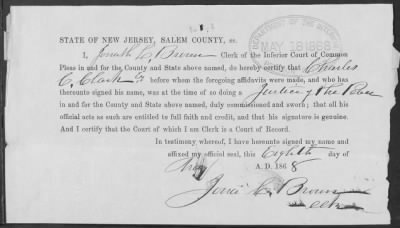 STATE OF NEW JERSEY, SALEM COUNTY, ss.
DEPARTMENT OF THE INTERIOR
MAY 18 1868
I, Brown Clerk of the Inferior Court of Common
Pleas in and for the County and State above named, do hereby certify that Charles
C. Clark before whom the foregoing affidavits were made, and who has
thereunto signed his name, was at the time of so doing a Justice of the Peace
in and for the County and State above named, duly commissioned and sworn; that all his
official acts as such are entitled to full faith and credit, and that his signature is genuine.
And I certify that the Court of which I am Clerk is a Court of Record.
In testimony whereof, I have hereunto signed my name and
affixed my official seal, this Eighth day of
May A. D. 1868
Brown
Clk